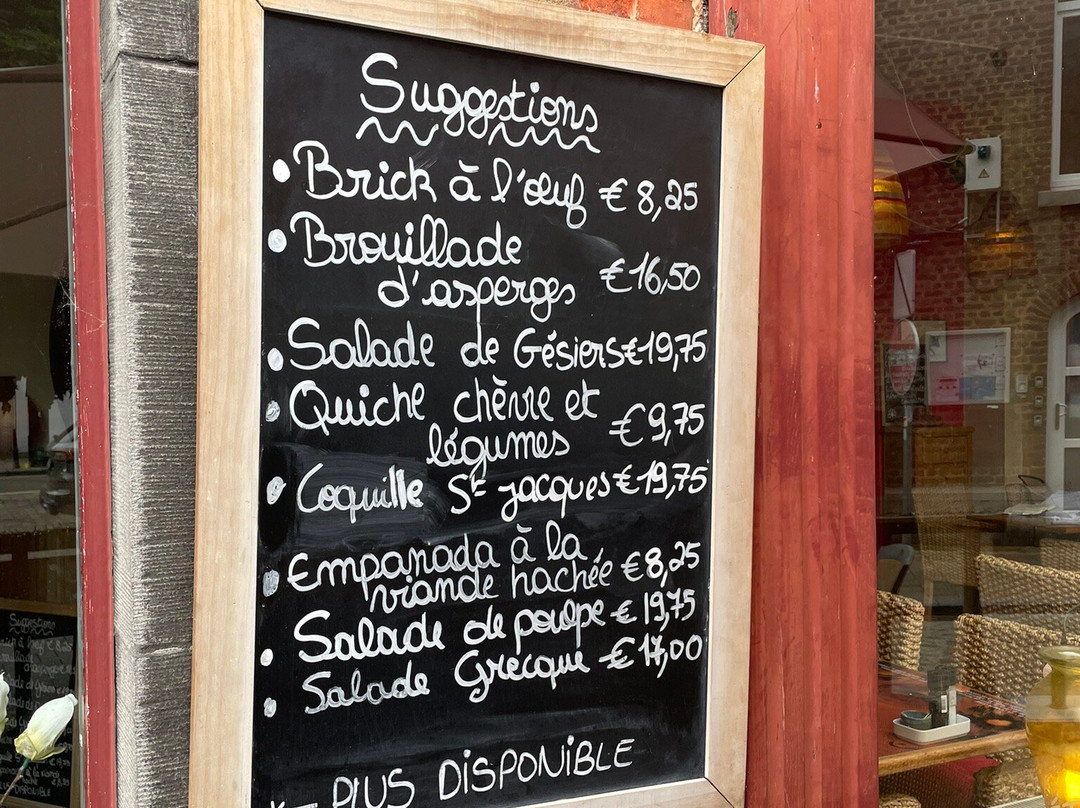 Suggestions
• Brick à l'œuf € 8,25
• Brouillade
d'asperges €16,50
• Salade de Gésiers €19,75
• Quiche chèvre et
légumes €9,75
• Coquille St Jacques €19,75
• Empanada à la
viande hachée €8,25
• Salade de poulpe € 19,75
• Salade Grecque € 17,00
PLUS DISPONIBLE
Suggestions